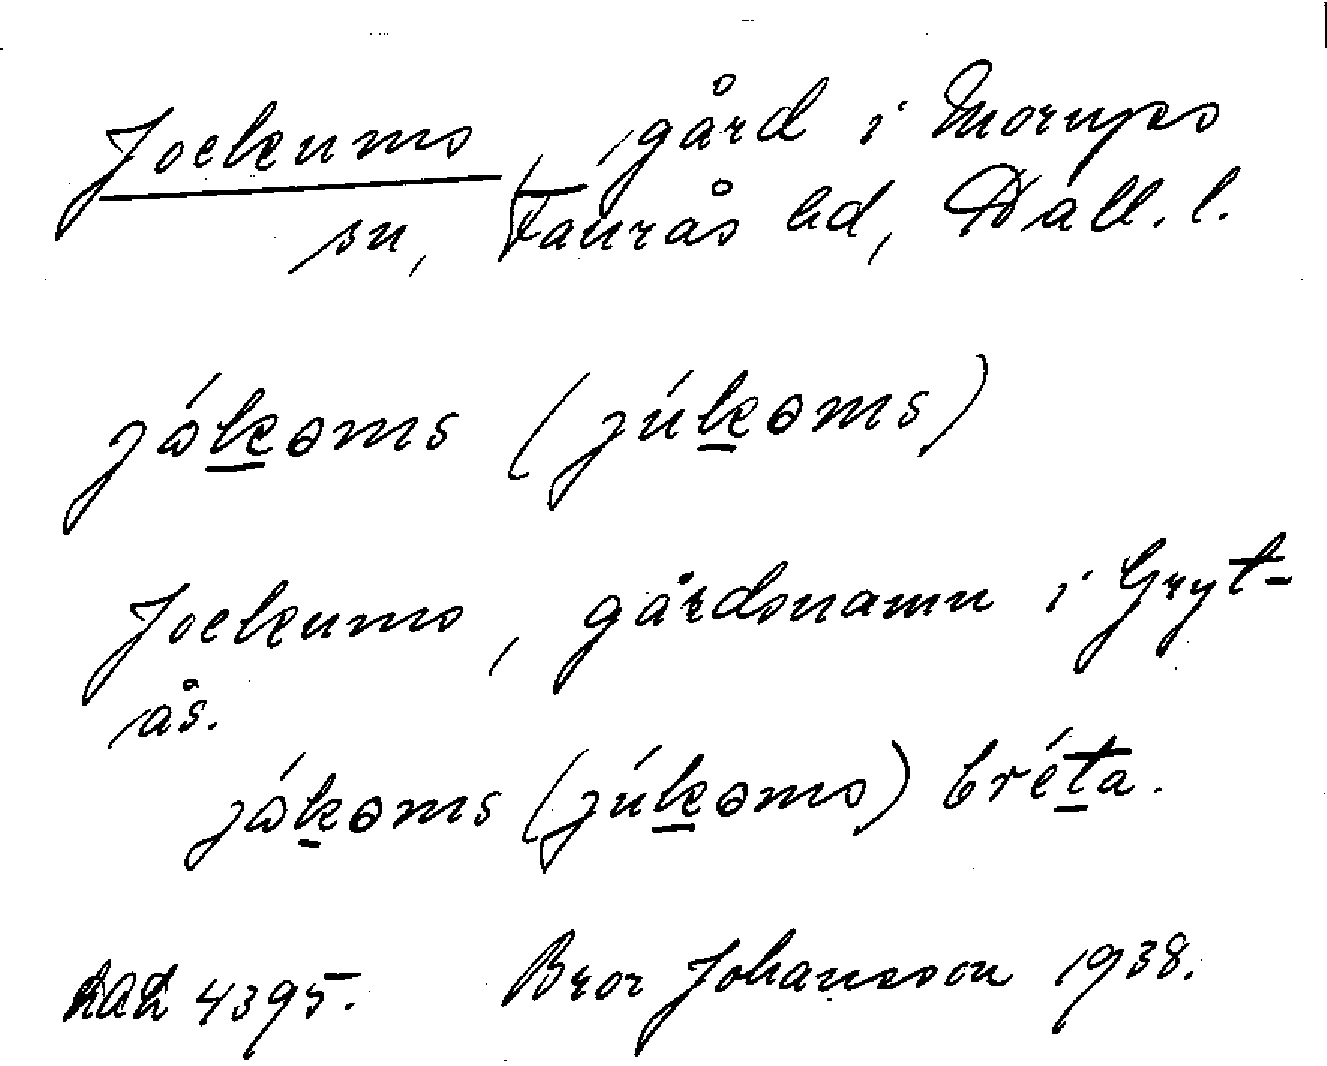 Jockums, gård i Morups
sn, Faurås hd, Hall. l.
jókəms (júkəms)
Jockums, gårdsnamn i Gryt-
ås.
jókəms (júkəms) bréta.
4395. Bror Johansson 1938.